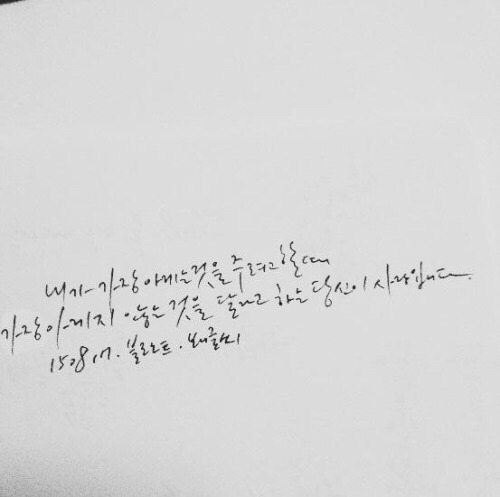 내가 가장 아끼는것을 주려고할때
가장 아끼지 않는 것을 달라고 하는 당신이 사랑입니다.
150817. 블로노트.